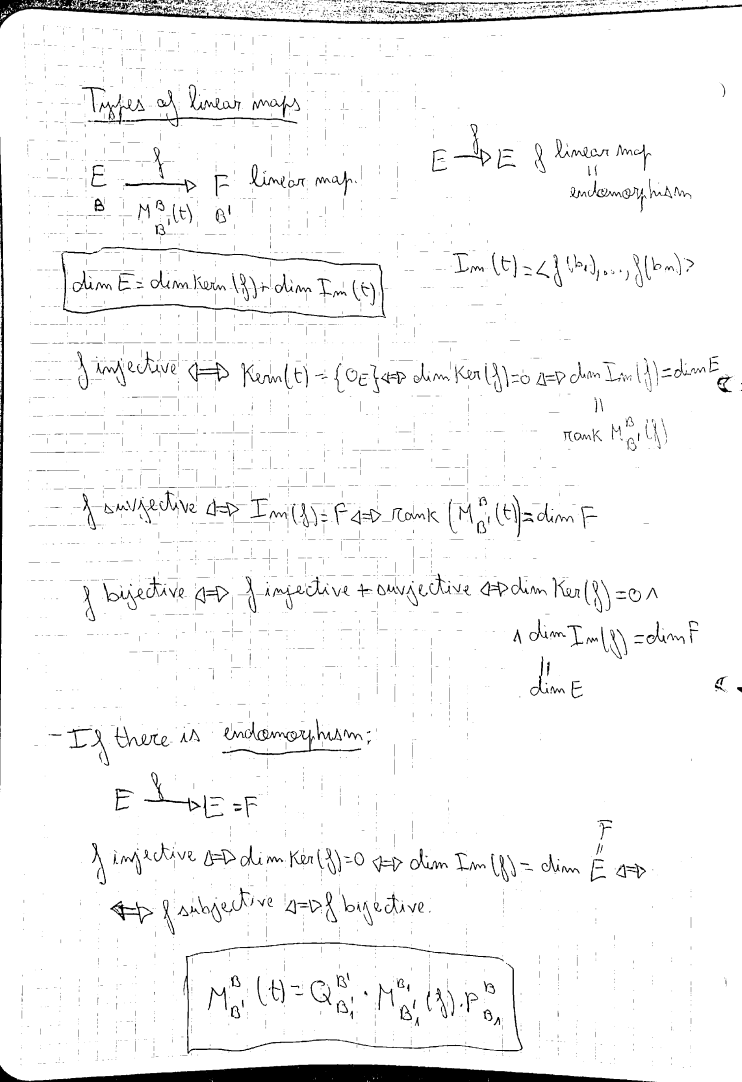 Types of linear maps
E —f→ F linear map.
B M^B_{B'}(t) B'
E —f→ E f linear map
||
endomorphism
dim E = dim Kern (f) + dim Im (t)
Im (t) = < f(b₁), ..., f(bn) >
f injective ⇔ Kern(t) = {0_E} ⇔ dim Ker(f)=0 ⇔ dim Im(f) = dim E
||
rank M^B_{B'}(f)
f surjective ⇔ Im(f) = F ⇔ rank (M^B_{B'}(t)) = dim F
f bijective ⇔ f injective + surjective ⇔ dim Ker(f) = 0 ∧
∧ dim Im(f) = dim F
||
dim E
- If there is endomorphism:
E —f→ E = F
F
||
f injective ⇔ dim Ker(f)=0 ⇔ dim Im(f) = dim E ⇔
⇔ f subjective ⇔ f bijective.
M^B_{B'}(t) = Q^{B'}_{B₁'} · M^{B₁}_{B₁'}(f) · P^B_{B₁}